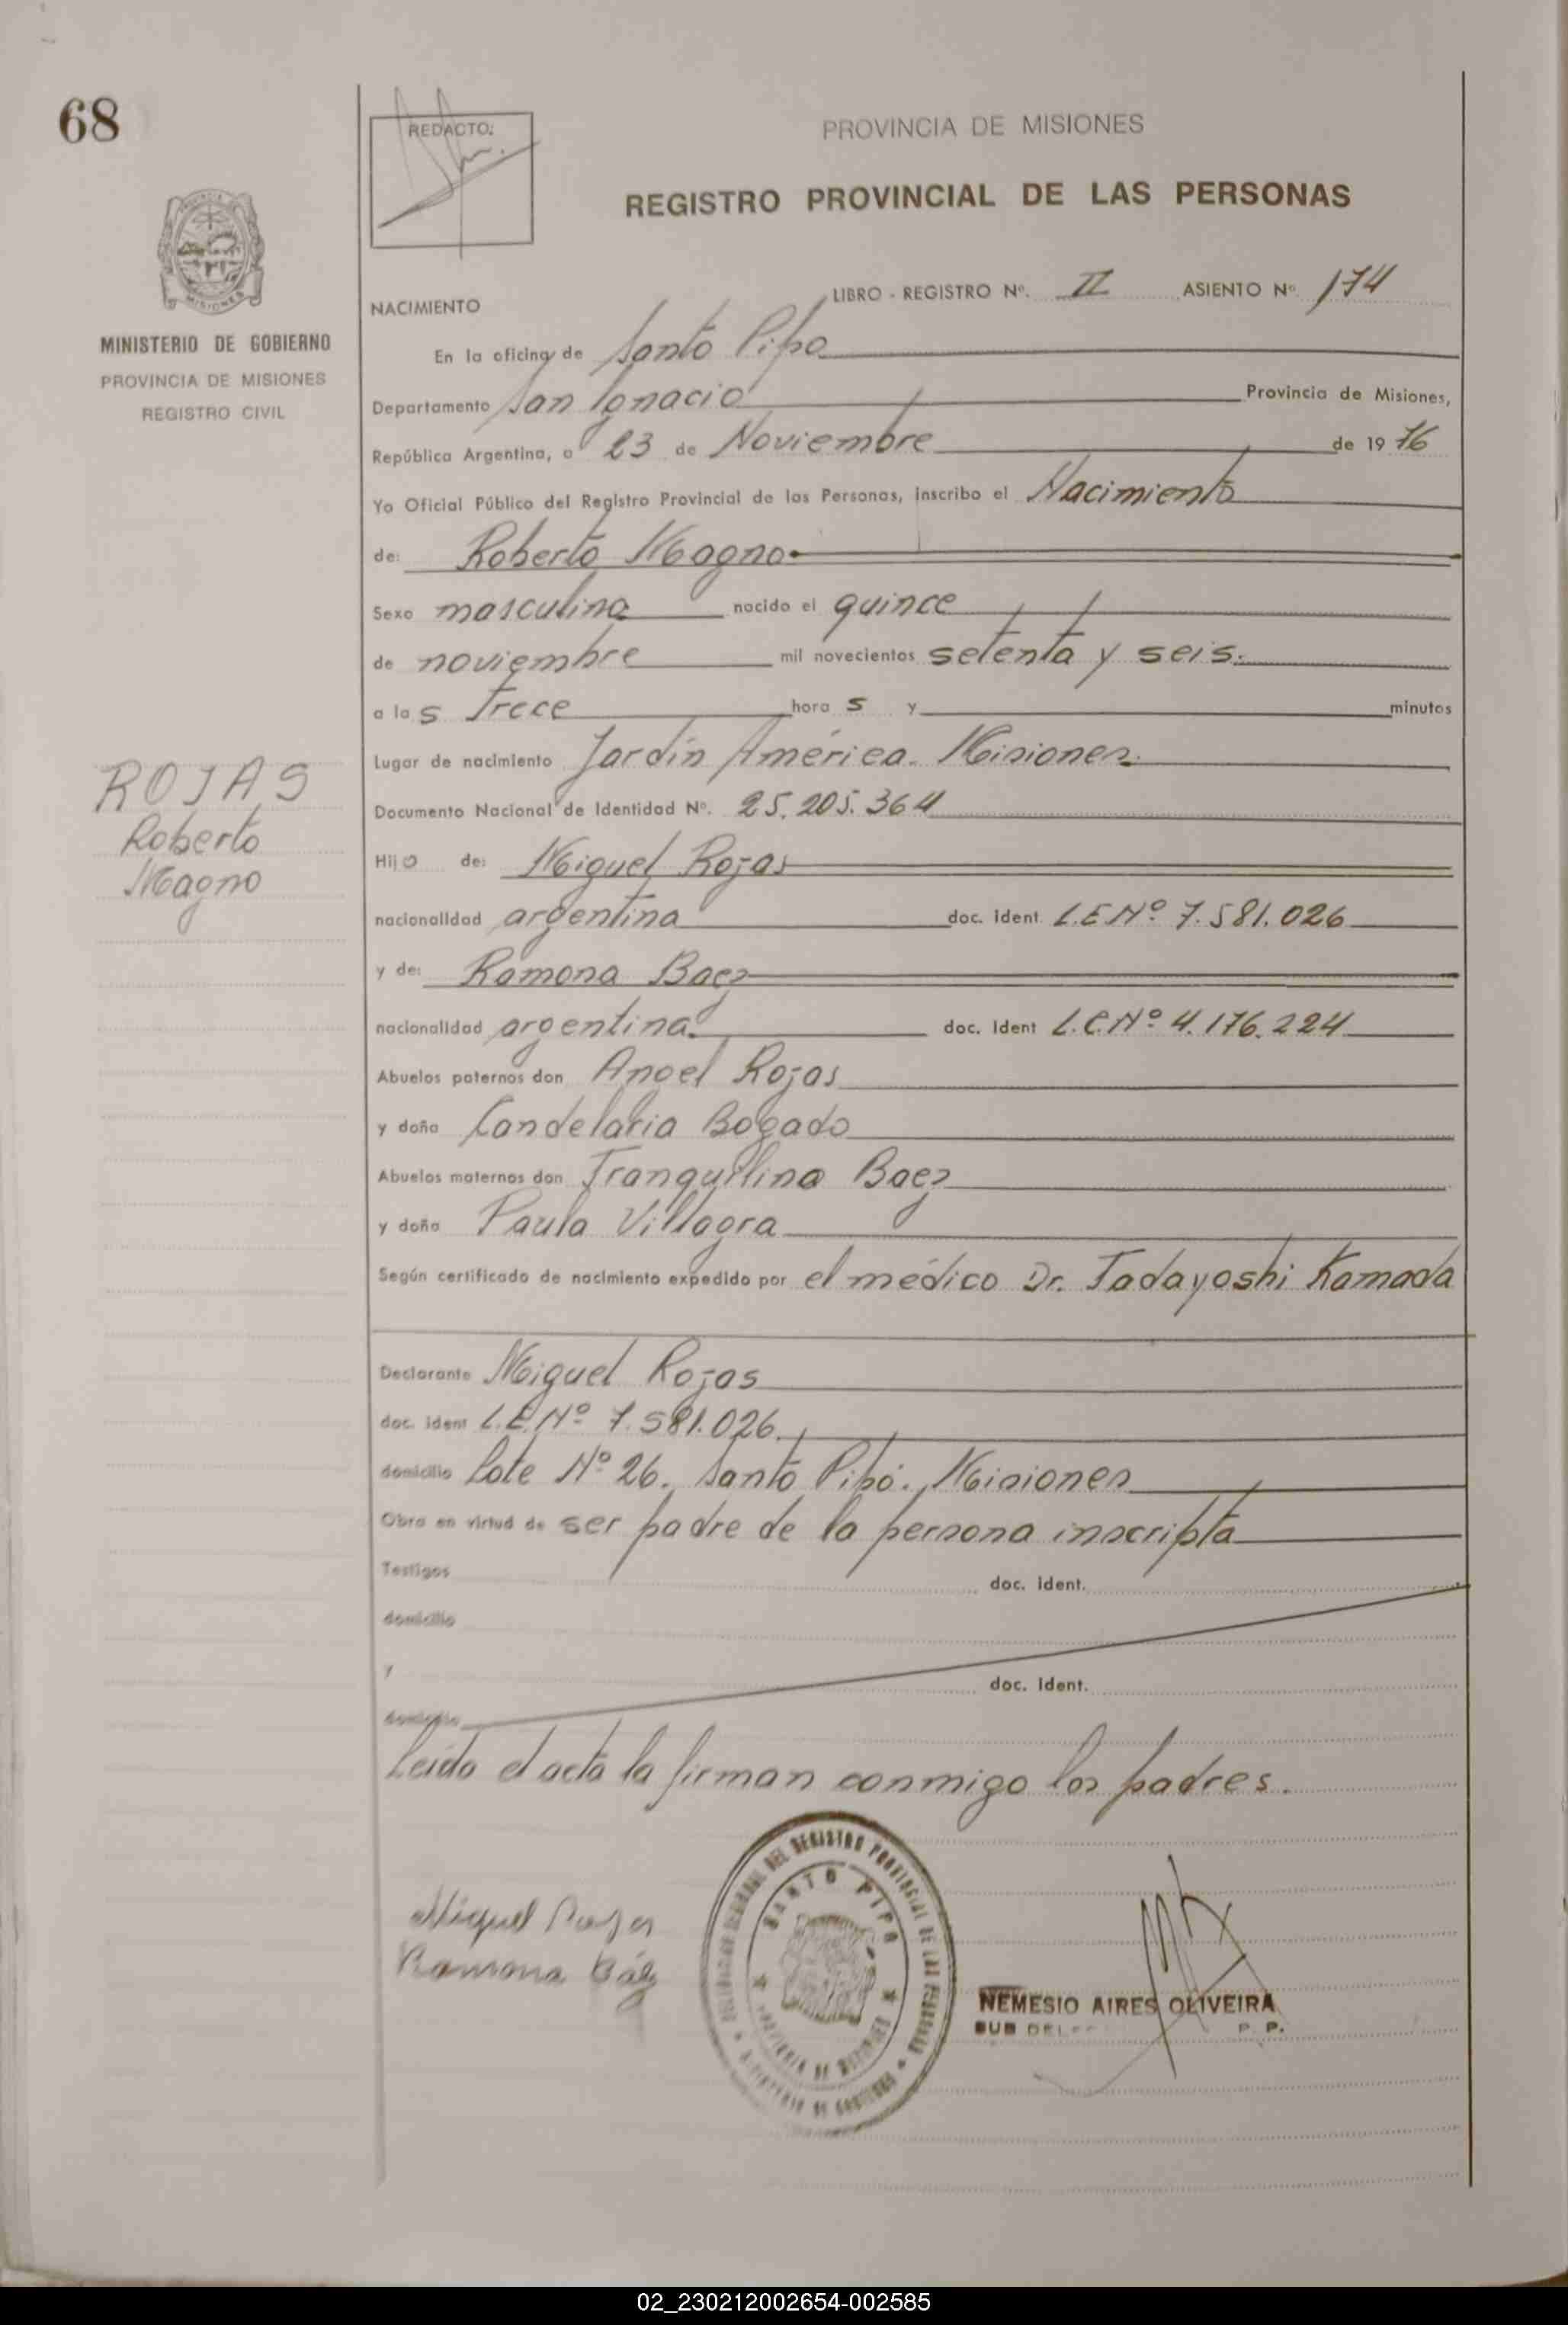 68
REDACTO:
PROVINCIA DE MISIONES
REGISTRO PROVINCIAL DE LAS PERSONAS
MISIONES
MINISTERIO DE GOBIERNO
PROVINCIA DE MISIONES
REGISTRO CIVIL
LIBRO - REGISTRO Nº. II ASIENTO Nº. 174
NACIMIENTO
En la oficina de Santo Pipo
Departamento San Ignacio Provincia de Misiones,
República Argentina, a 23 de Noviembre de 19 76
Yo Oficial Público del Registro Provincial de las Personas, inscribo el Nacimiento
de: Roberto Magno
Sexo masculino nacido el quince
de noviembre mil novecientos setenta y seis.
a las trece hora s y minutos
Lugar de nacimiento Jardín América. Misiones.
ROJAS
Roberto
Magno
Documento Nacional de Identidad Nº. 25.205.364
Hijo de: Miguel Rojas
nacionalidad argentina doc. ident. L.E.Nº 7.581.026
y de: Ramona Baez
nacionalidad argentina. doc. ident L.C.Nº 4.176.224
Abuelos paternos don Angel Rojas
y doña Candelaria Bogado
Abuelos maternos don Tranquilino Baez
y doña Paula Villagra
Según certificado de nacimiento expedido por el médico Dr. Tadayoshi Kamada
Declarante Miguel Rojas
doc. ident L.E.Nº 7.581.026.
domicilio Lote Nº 26. Santo Pipó. Misiones
Obra en virtud de ser padre de la persona inscripta
Testigos doc. ident.
domicilio
y doc. ident.
domicilio
Leída el acta la firman conmigo los padres.
Miguel Rojas
Ramona Báez
DEL REGISTRO PROVINCIAL DE LAS PERSONAS
SANTO PIPO
PROVINCIA DE MISIONES
MINISTERIO DE GOBIERNO
NEMESIO AIRES OLIVEIRA
SUB P. P.
02_230212002654-002585